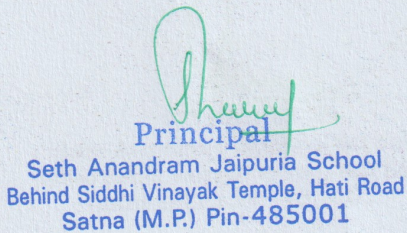 Principal
Seth Anandram Jaipuria School
Behind Siddhi Vinayak Temple, Hati Road
Satna (M.P.) Pin-485001